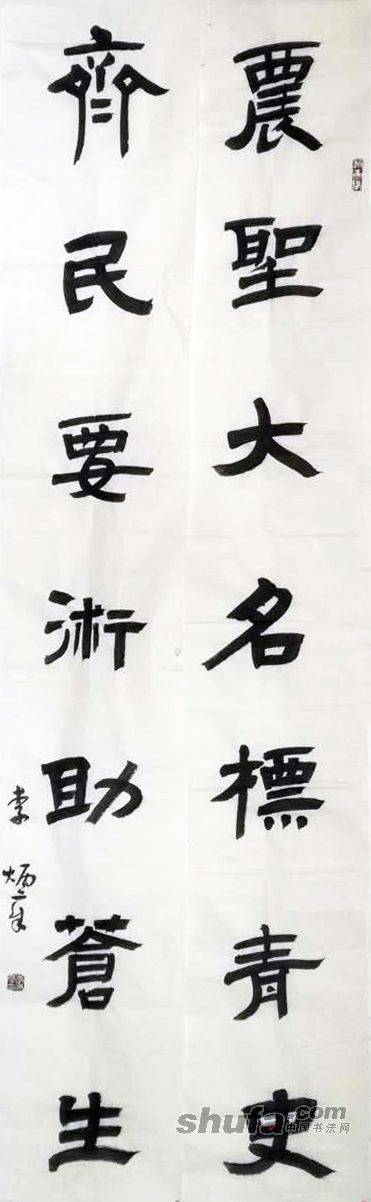 農聖大名標青史
齊民要術助蒼生
李炳軍
shufa.com
中国书法网